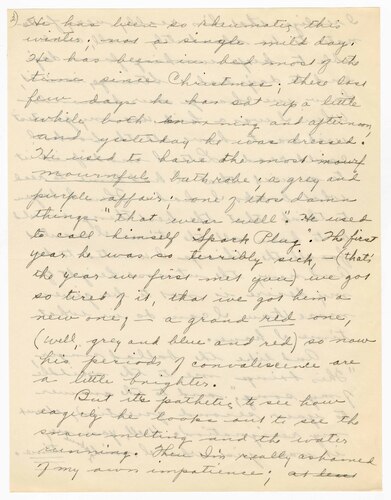 3)
He has been so rheumatic this
winter; not a single mild day.
He has been in bed most of the
time since Christmas; these last
few days he has sat up a little
while both morning and afternoon,
and yesterday he was dressed.
He used to have the most
mournful bathrobe; a grey and
purple affair; one of thos damn
things "that wear well". He used
to call himself "Spark Plug". The first
year he was so terribly sick, – (that's
the year we first met you) we got
so tired of it, that we got him a
new one; – a grand red one,
(well, grey and blue and red) so now
his periods of convalescence are
a little brighter.
But its pathetic to see how
eagerly he looks out to see the
snow melting and the water
running. Then I'm really ashamed
of my own impatience; at least